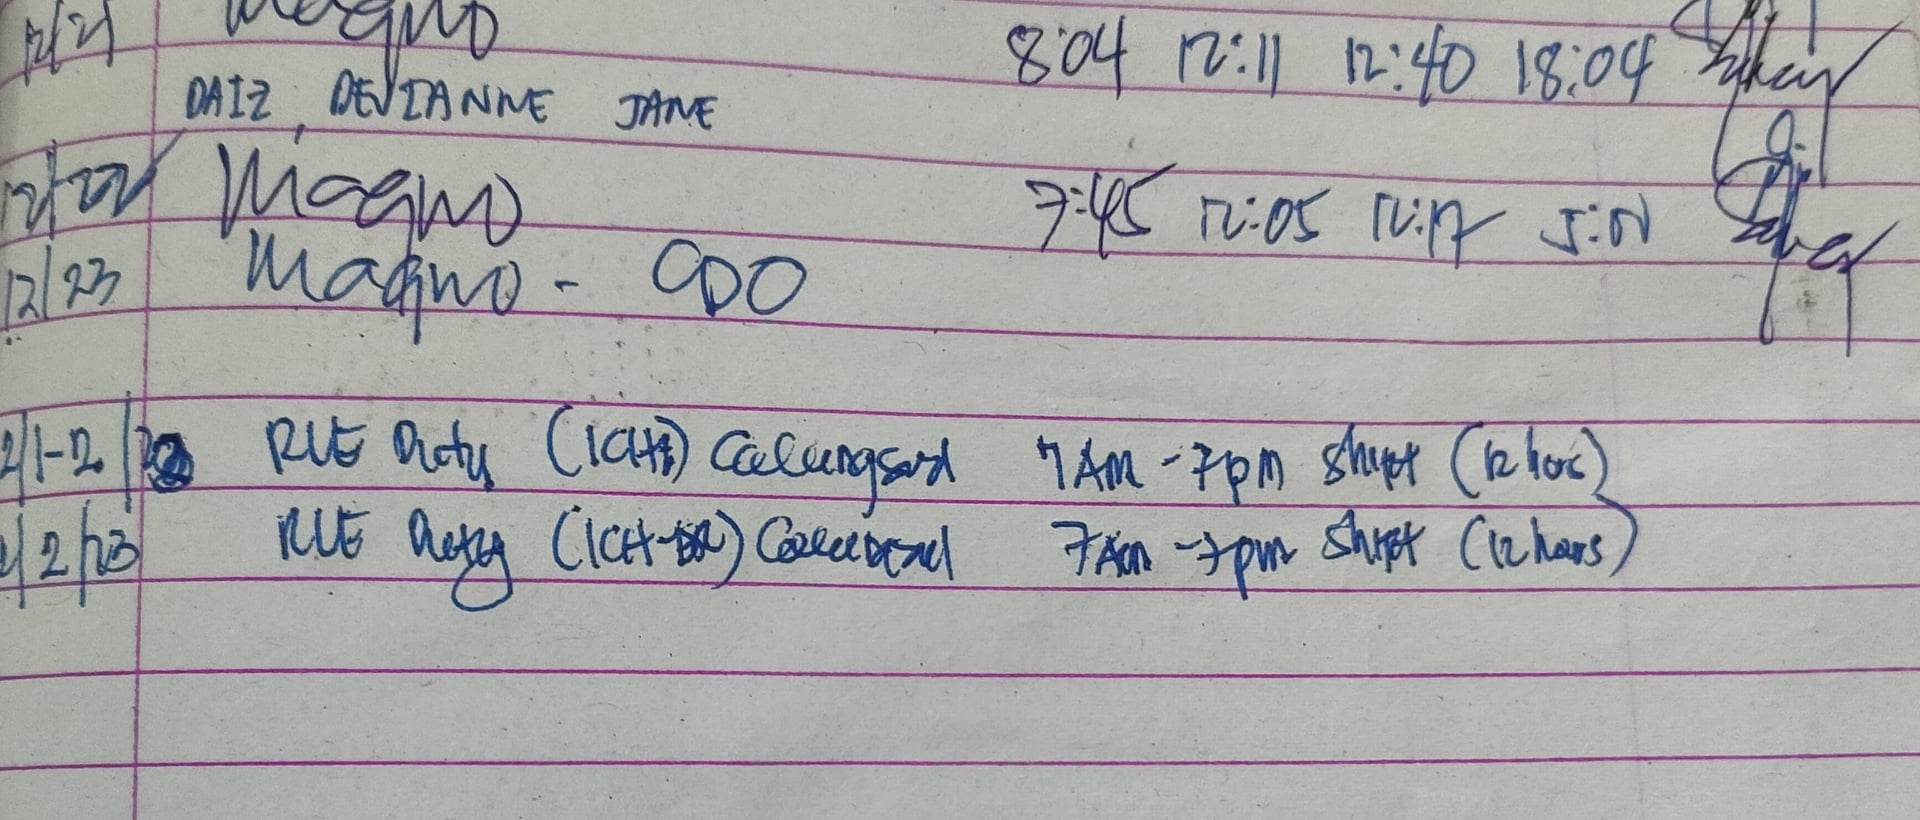 12/21 Magno 8:04 12:11 12:40 18:04
DAIZ, DEVIANNE JANE
12/22 Magno 7:45 12:05 12:17 5:01
12/23 Magno - CDO
2/1-2/ RLE Duty (ICH) Calungsod 7AM-7pm shift (12 hrs)
2/2/23 RLE Duty (ICH-DR) 7Am-7pm shift (12 hours)